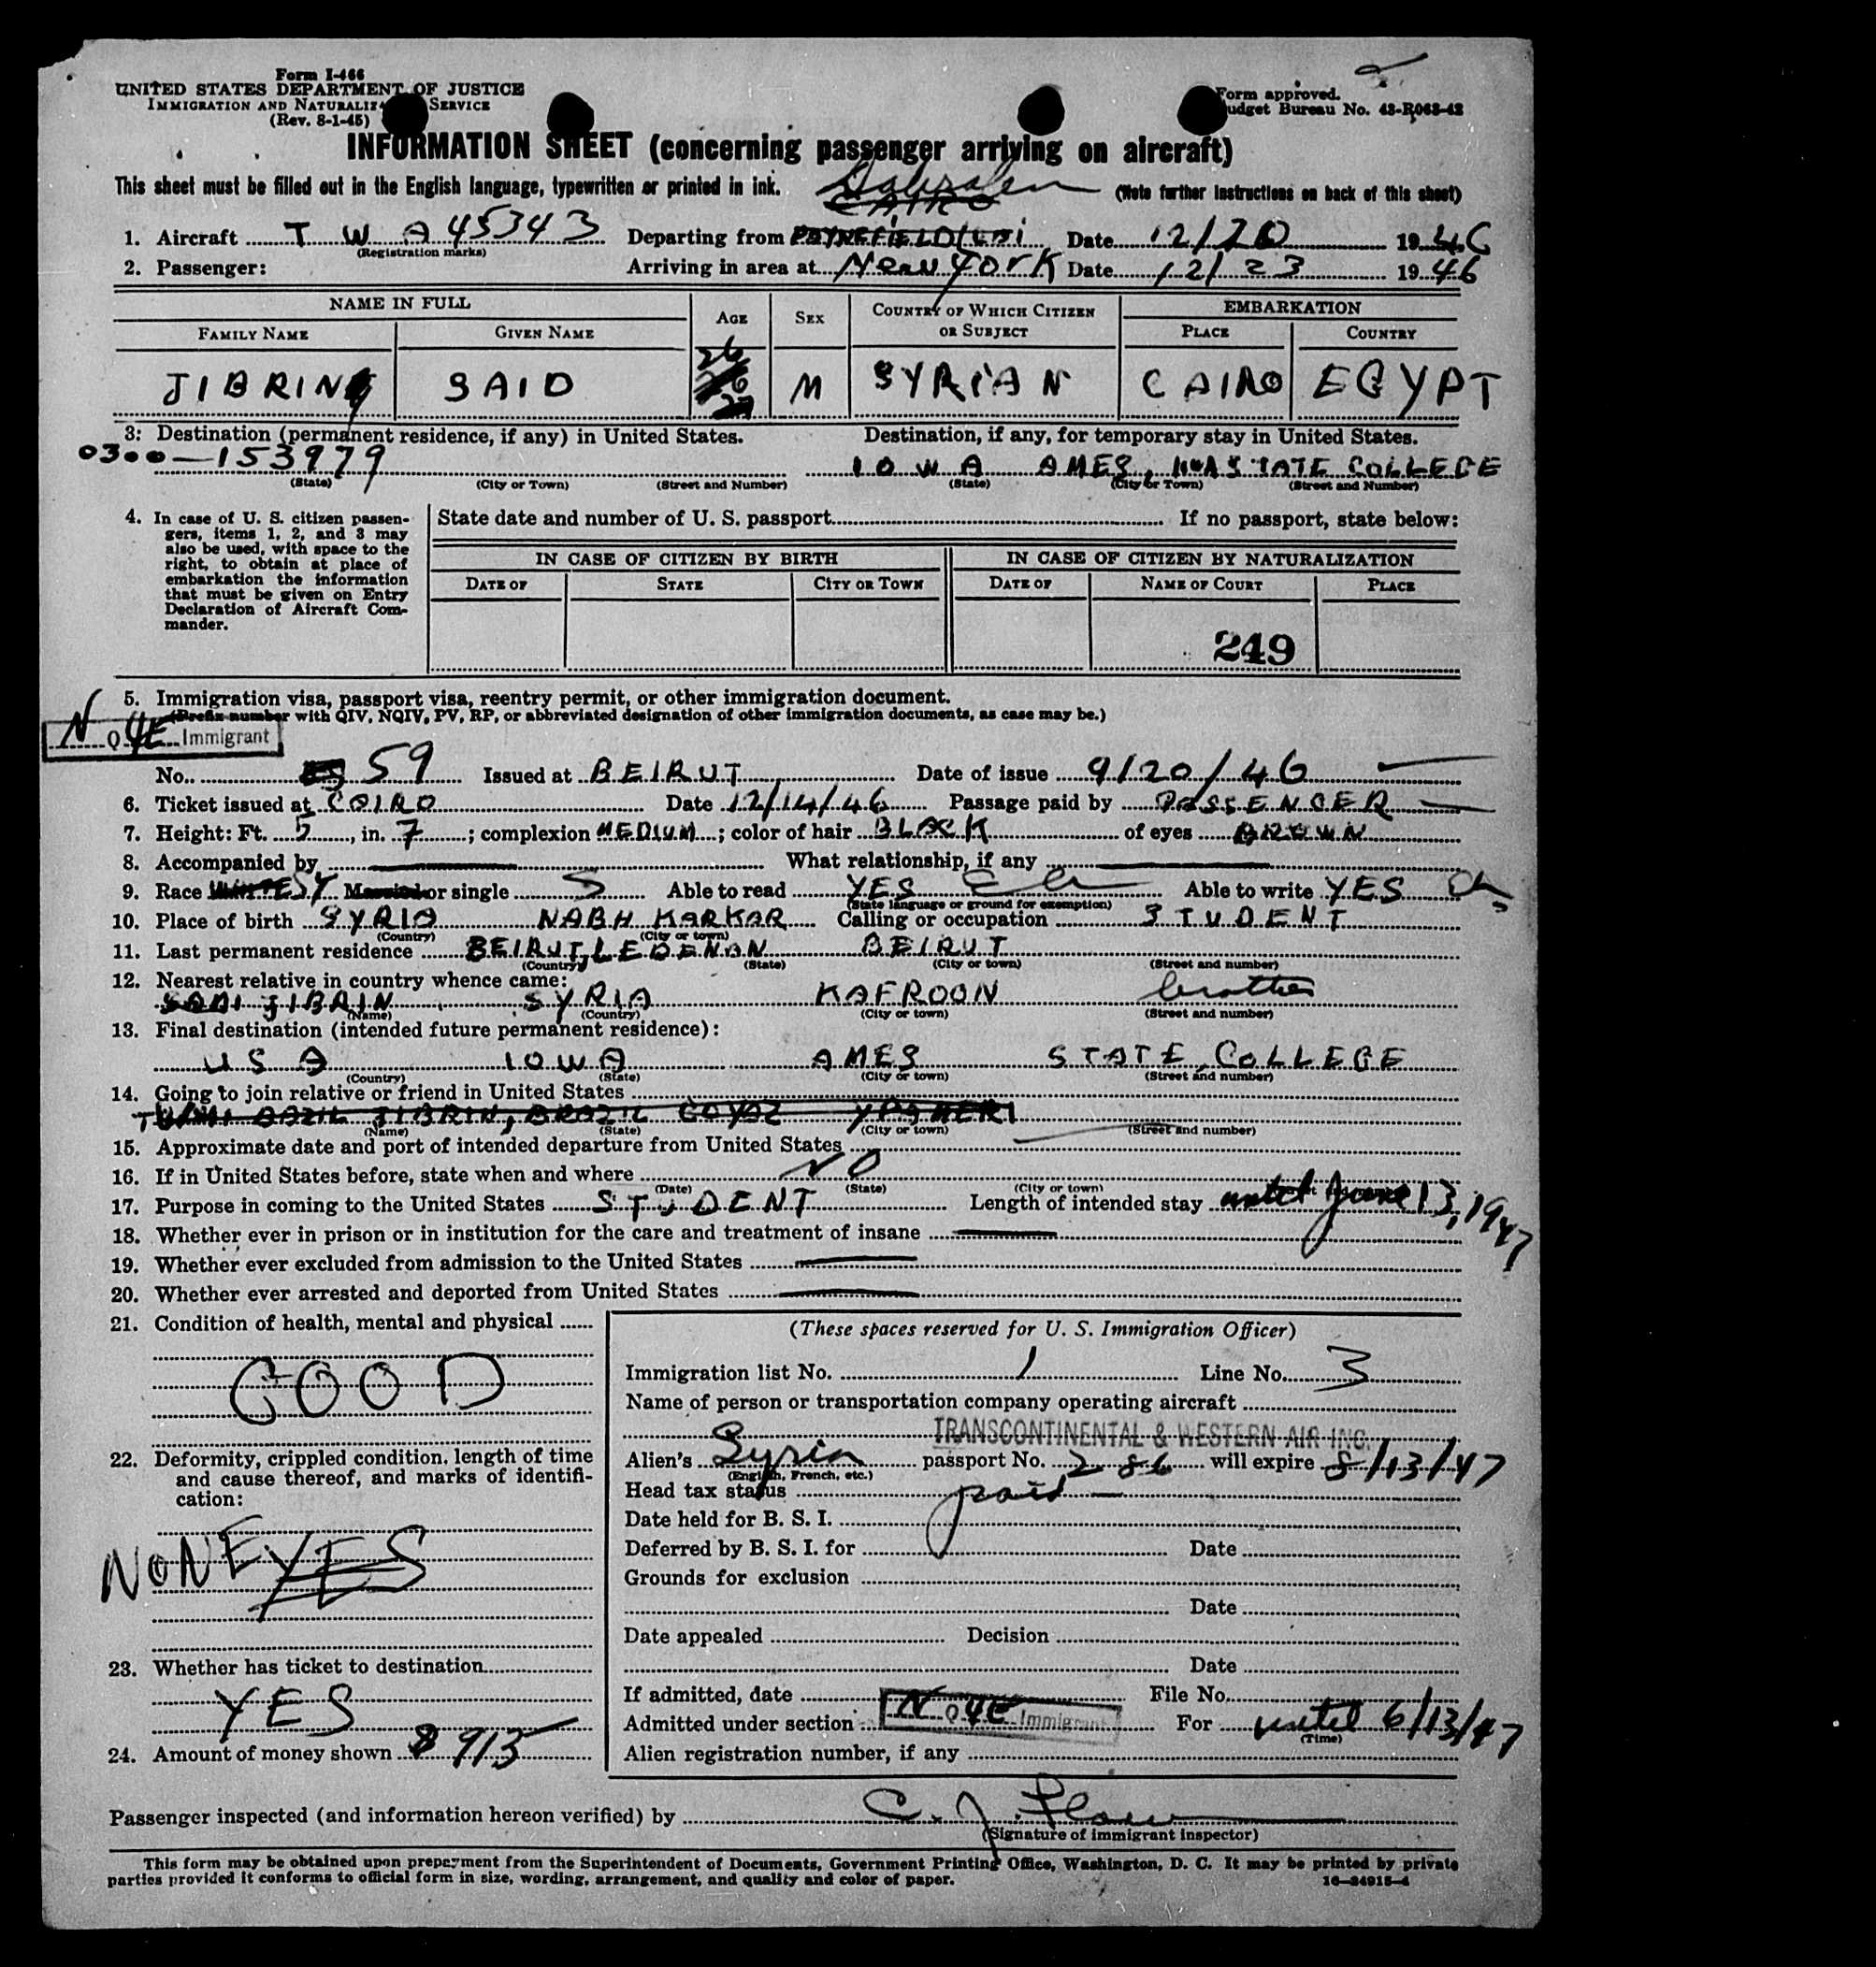 Form I-466
UNITED STATES DEPARTMENT OF JUSTICE
IMMIGRATION AND NATURALIZ SERVICE
(Rev. 8-1-45)
Form approved.
udget Bureau No. 43-R063-42
INFORMATION SHEET (concerning passenger arriving on aircraft)
This sheet must be filled out in the English language, typewritten or printed in ink. (Note further instructions on back of this sheet)
CAIRO
1. Aircraft T W A 45343 Departing from Date 12/20 1946
(Registration marks)
2. Passenger: Arriving in area at New York Date 12/23 1946
NAME IN FULL AGE SEX COUNTRY OF WHICH CITIZEN OR SUBJECT EMBARKATION
FAMILY NAME GIVEN NAME PLACE COUNTRY
26
JIBRIN SAID M SYRIAN CAIRO EGYPT
3: Destination (permanent residence, if any) in United States. Destination, if any, for temporary stay in United States.
0300-153979 IOWA AMES, STATE COLLEGE
(State) (City or Town) (Street and Number) (State) (City or Town) (Street and Number)
4. In case of U. S. citizen passengers, items 1, 2, and 3 may also be used, with space to the right, to obtain at place of embarkation the information that must be given on Entry Declaration of Aircraft Commander.
State date and number of U. S. passport If no passport, state below:
IN CASE OF CITIZEN BY BIRTH IN CASE OF CITIZEN BY NATURALIZATION
DATE OF STATE CITY OR TOWN DATE OF NAME OF COURT PLACE
249
5. Immigration visa, passport visa, reentry permit, or other immigration document.
(Prefix number with QIV, NQIV, PV, RP, or abbreviated designation of other immigration documents, as case may be.)
N Q 4E Immigrant
No. 59 Issued at BEIRUT Date of issue 9/20/46
6. Ticket issued at CAIRO Date 12/14/46 Passage paid by PASSENGER
7. Height: Ft. 5, in. 7; complexion MEDIUM; color of hair BLACK of eyes BROWN
8. Accompanied by What relationship, if any
9. Race SY Married or single S Able to read YES Able to write YES
(State language or ground for exemption)
10. Place of birth SYRIA NABH KARKAR Calling or occupation STUDENT
(Country) (City or town)
11. Last permanent residence BEIRUT, LEBENAN BEIRUT
(Country) (State) (City or town) (Street and number)
12. Nearest relative in country whence came:
JIBRIN SYRIA KAFROON brother
(Name) (Country) (City or town) (Street and number)
13. Final destination (intended future permanent residence):
USA IOWA AMES STATE COLLEGE
(Country) (State) (City or town) (Street and number)
14. Going to join relative or friend in United States
JIBRIN, BRAZIL GOYAZ
(Name) (State) (City or town) (Street and number)
15. Approximate date and port of intended departure from United States
16. If in United States before, state when and where NO
(Date) (State) (City or town)
17. Purpose in coming to the United States STUDENT Length of intended stay until June 13, 1947
18. Whether ever in prison or in institution for the care and treatment of insane
19. Whether ever excluded from admission to the United States
20. Whether ever arrested and deported from United States
21. Condition of health, mental and physical
GOOD
22. Deformity, crippled condition, length of time and cause thereof, and marks of identification:
NONE YES
23. Whether has ticket to destination
YES
24. Amount of money shown $ 915
(These spaces reserved for U. S. Immigration Officer)
Immigration list No. 1 Line No. 3
Name of person or transportation company operating aircraft
TRANSCONTINENTAL & WESTERN AIR INC.
Alien's Syria passport No. 286 will expire 8/13/47
(English, French, etc.)
Head tax status paid
Date held for B. S. I.
Deferred by B. S. I. for Date
Grounds for exclusion
Date
Date appealed Decision
Date
If admitted, date File No.
Admitted under section N Q 4E Immigrant For until 6/13/47
(Time)
Alien registration number, if any
Passenger inspected (and information hereon verified) by
(Signature of immigrant inspector)
This form may be obtained upon prepayment from the Superintendent of Documents, Government Printing Office, Washington, D. C. It may be printed by private
parties provided it conforms to official form in size, wording, arrangement, and quality and color of paper. 16—24915-4